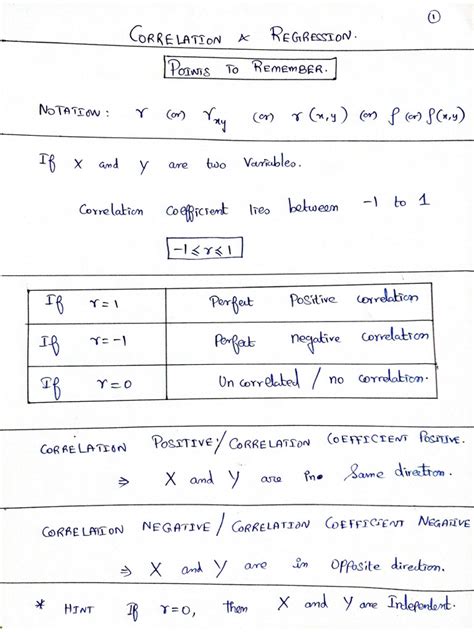 ①
CORRELATION & REGRESSION.
POINTS TO REMEMBER.
NOTATION : r (or) r_xy (or) r(x,y) (or) ρ (or) ρ(x,y)
If X and Y are two Variables.
Correlation coefficient lies between -1 to 1
-1 ≤ r ≤ 1
If r = 1 Perfect Positive correlation
If r = -1 Perfect negative correlation
If r = 0 Un correlated / no correlation.
CORRELATION POSITIVE / CORRELATION COEFFICIENT POSITIVE.
⇒ X and Y are in Same direction.
CORRELATION NEGATIVE / CORRELATION COEFFICIENT NEGATIVE
⇒ X and Y are in opposite direction.
* HINT If r=0, then X and Y are Independent.